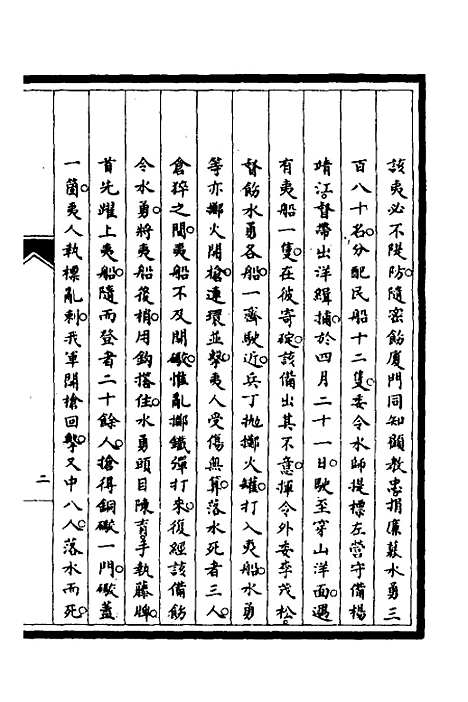 該夷必不隄防。隨密飭廈門同知顧教忠捐廉鼓水勇三
百八十名。分配民船十二隻。委令水師提標左營守備楊
靖江督帶出洋緝捕。於四月二十一日。駛至穿山洋面。遇
有夷船一隻。在彼寄碇。該備出其不意。揮令外委李茂松。
督飭水勇各船。一齊駛近。兵丁拋擲火罐。打入夷船。水勇
等亦擲火開搶。連環並擊。夷人受傷無算。落水死者三人。
倉猝之間。夷船不及開礮。惟亂擲鐵彈打來。復經該備飭
令水勇。將夷船後梢用鉤搭住。水勇頭目陳育。手執藤牌。
首先躍上夷船。隨而登者二十餘人。搶得銅礮一門。礮蓋
一箇。夷人執標亂刺。我軍開搶回擊。又中八人。落水而死。
二